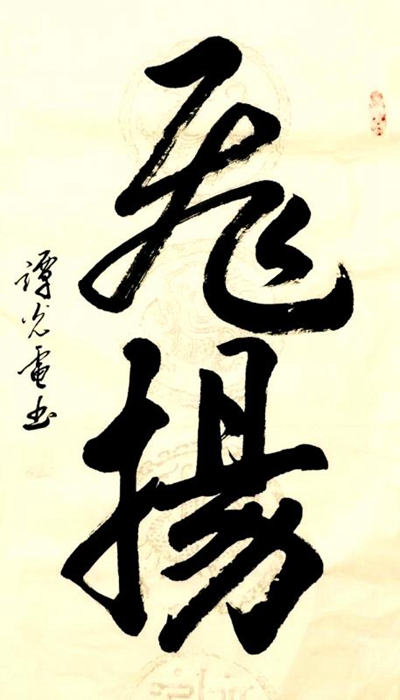 飛揚
譚光電书